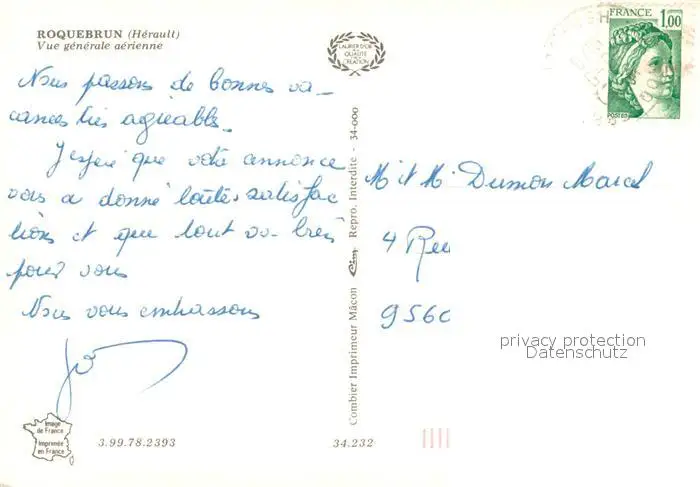 ROQUEBRUN (Hérault)
Vue générale aérienne
LAURIER D'OR
DE LA
QUALITÉ
CRÉATION
FRANCE
1,00
POSTES
Nous passons de bonnes va_
cances très agréables_
J'espère que votre annonce
vous a donné toutes satisfac
tions et que tout va bien
pour vous
Nous vous embrassons
M et M. Dumon Marcel
4 Rue
9560
Combier Imprimeur Mâcon Cim Repro. Interdite - 34-000
privacy protection
Datenschutz
Image
de France
Imprimée
en France
3.99.78.2393
34.232